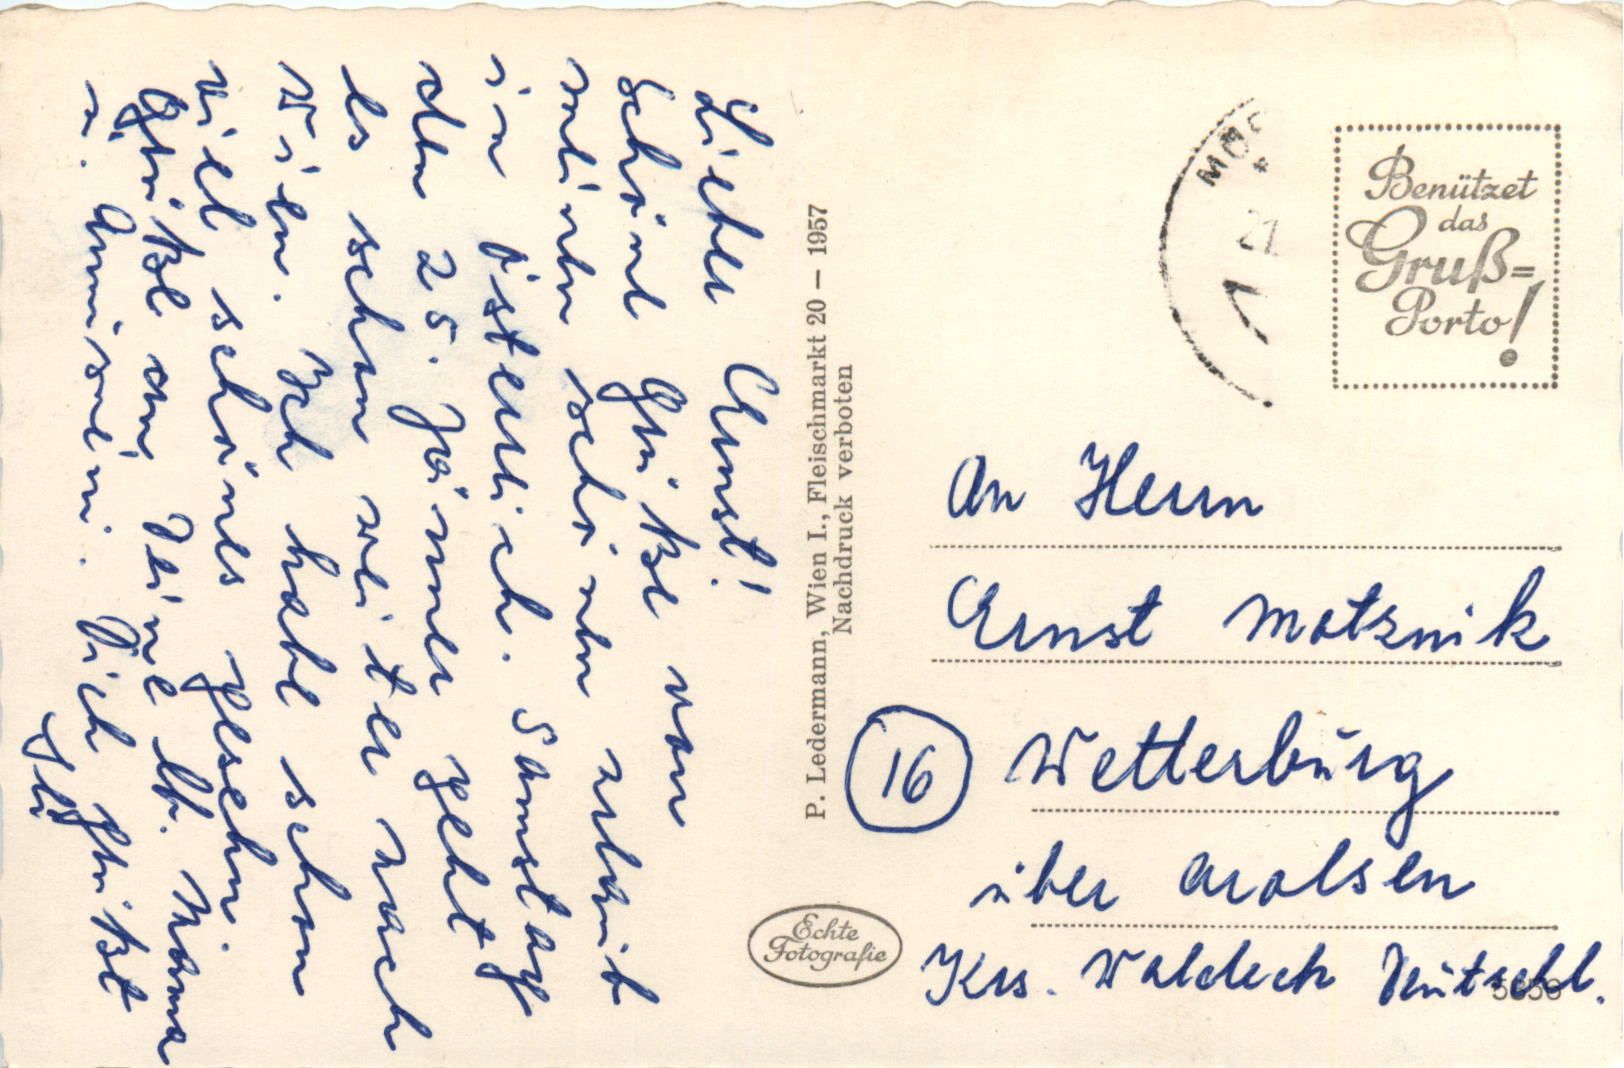 Lieber Ernst!
Schöne Grüße von
meinen schönen Urlaub
in Österreich. Samstag
den 25. Jänner geht
es schon weiter nach
Wien. Ich habe schon
viel schönes gesehen.
Grüße an Deine lb. Mama
u. Dich grüßt
P. Ledermann, Wien I., Fleischmarkt 20 – 1957
Nachdruck verboten
Echte
Fotografie
Benützet
das
Gruß=
Porto!
21
An Herrn
Ernst Motznik
16 Wetterburg
über Arolsen
Krs. Waldeck Deutschl.